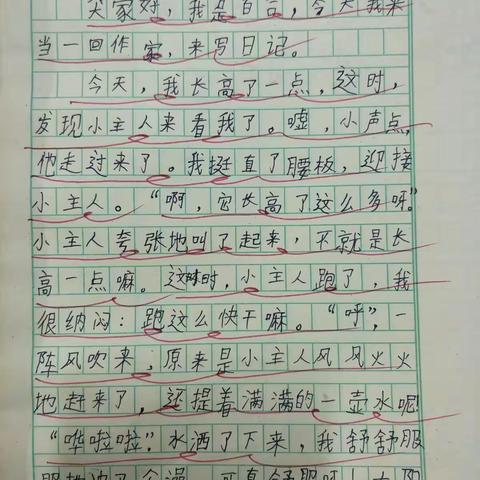 大家好，我是百合，今天我来
当一回作家，来写日记。
今天，我长高了一点，这时，
发现小主人来看我了。嘘，小声点，
他走过来了。我挺直了腰板，迎接
小主人。“啊，它长高了这么多呀。”
小主人夸张地叫了起来，不就是长
高一点嘛。这时，小主人跑了，我
很纳闷：跑这么快干嘛。“呼”，一
阵风吹来，原来是小主人风风火火
地赶来了，还提着满满的一壶水呢！
“哗啦啦”水洒了下来，我舒舒服
服地冲了个澡，可真舒服呀！太阳